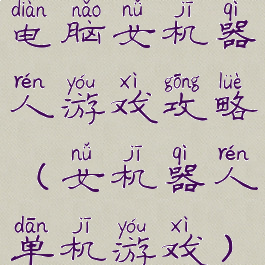 diàn nǎo nǚ jī qì
电脑女机器
rén yóu xì gōng lüè
人游戏攻略
nǚ jī qì rén
（女机器人
dān jī yóu xì
单机游戏）